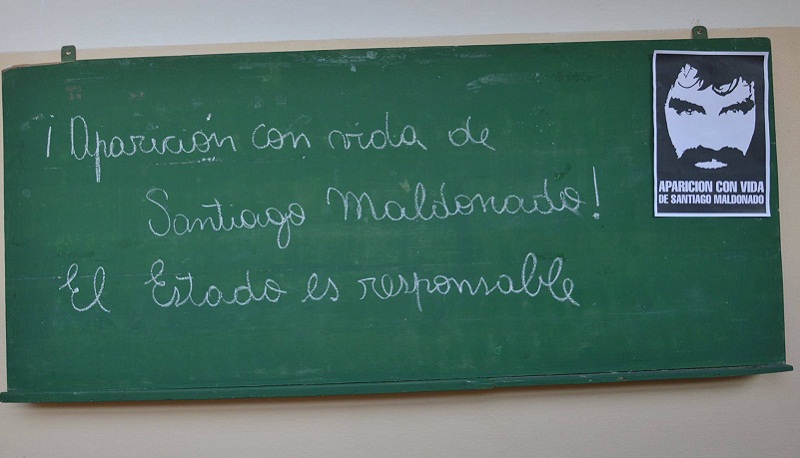 ¡Aparición con vida de
Santiago Maldonado!
El Estado es responsable
APARICION CON VIDA
DE SANTIAGO MALDONADO